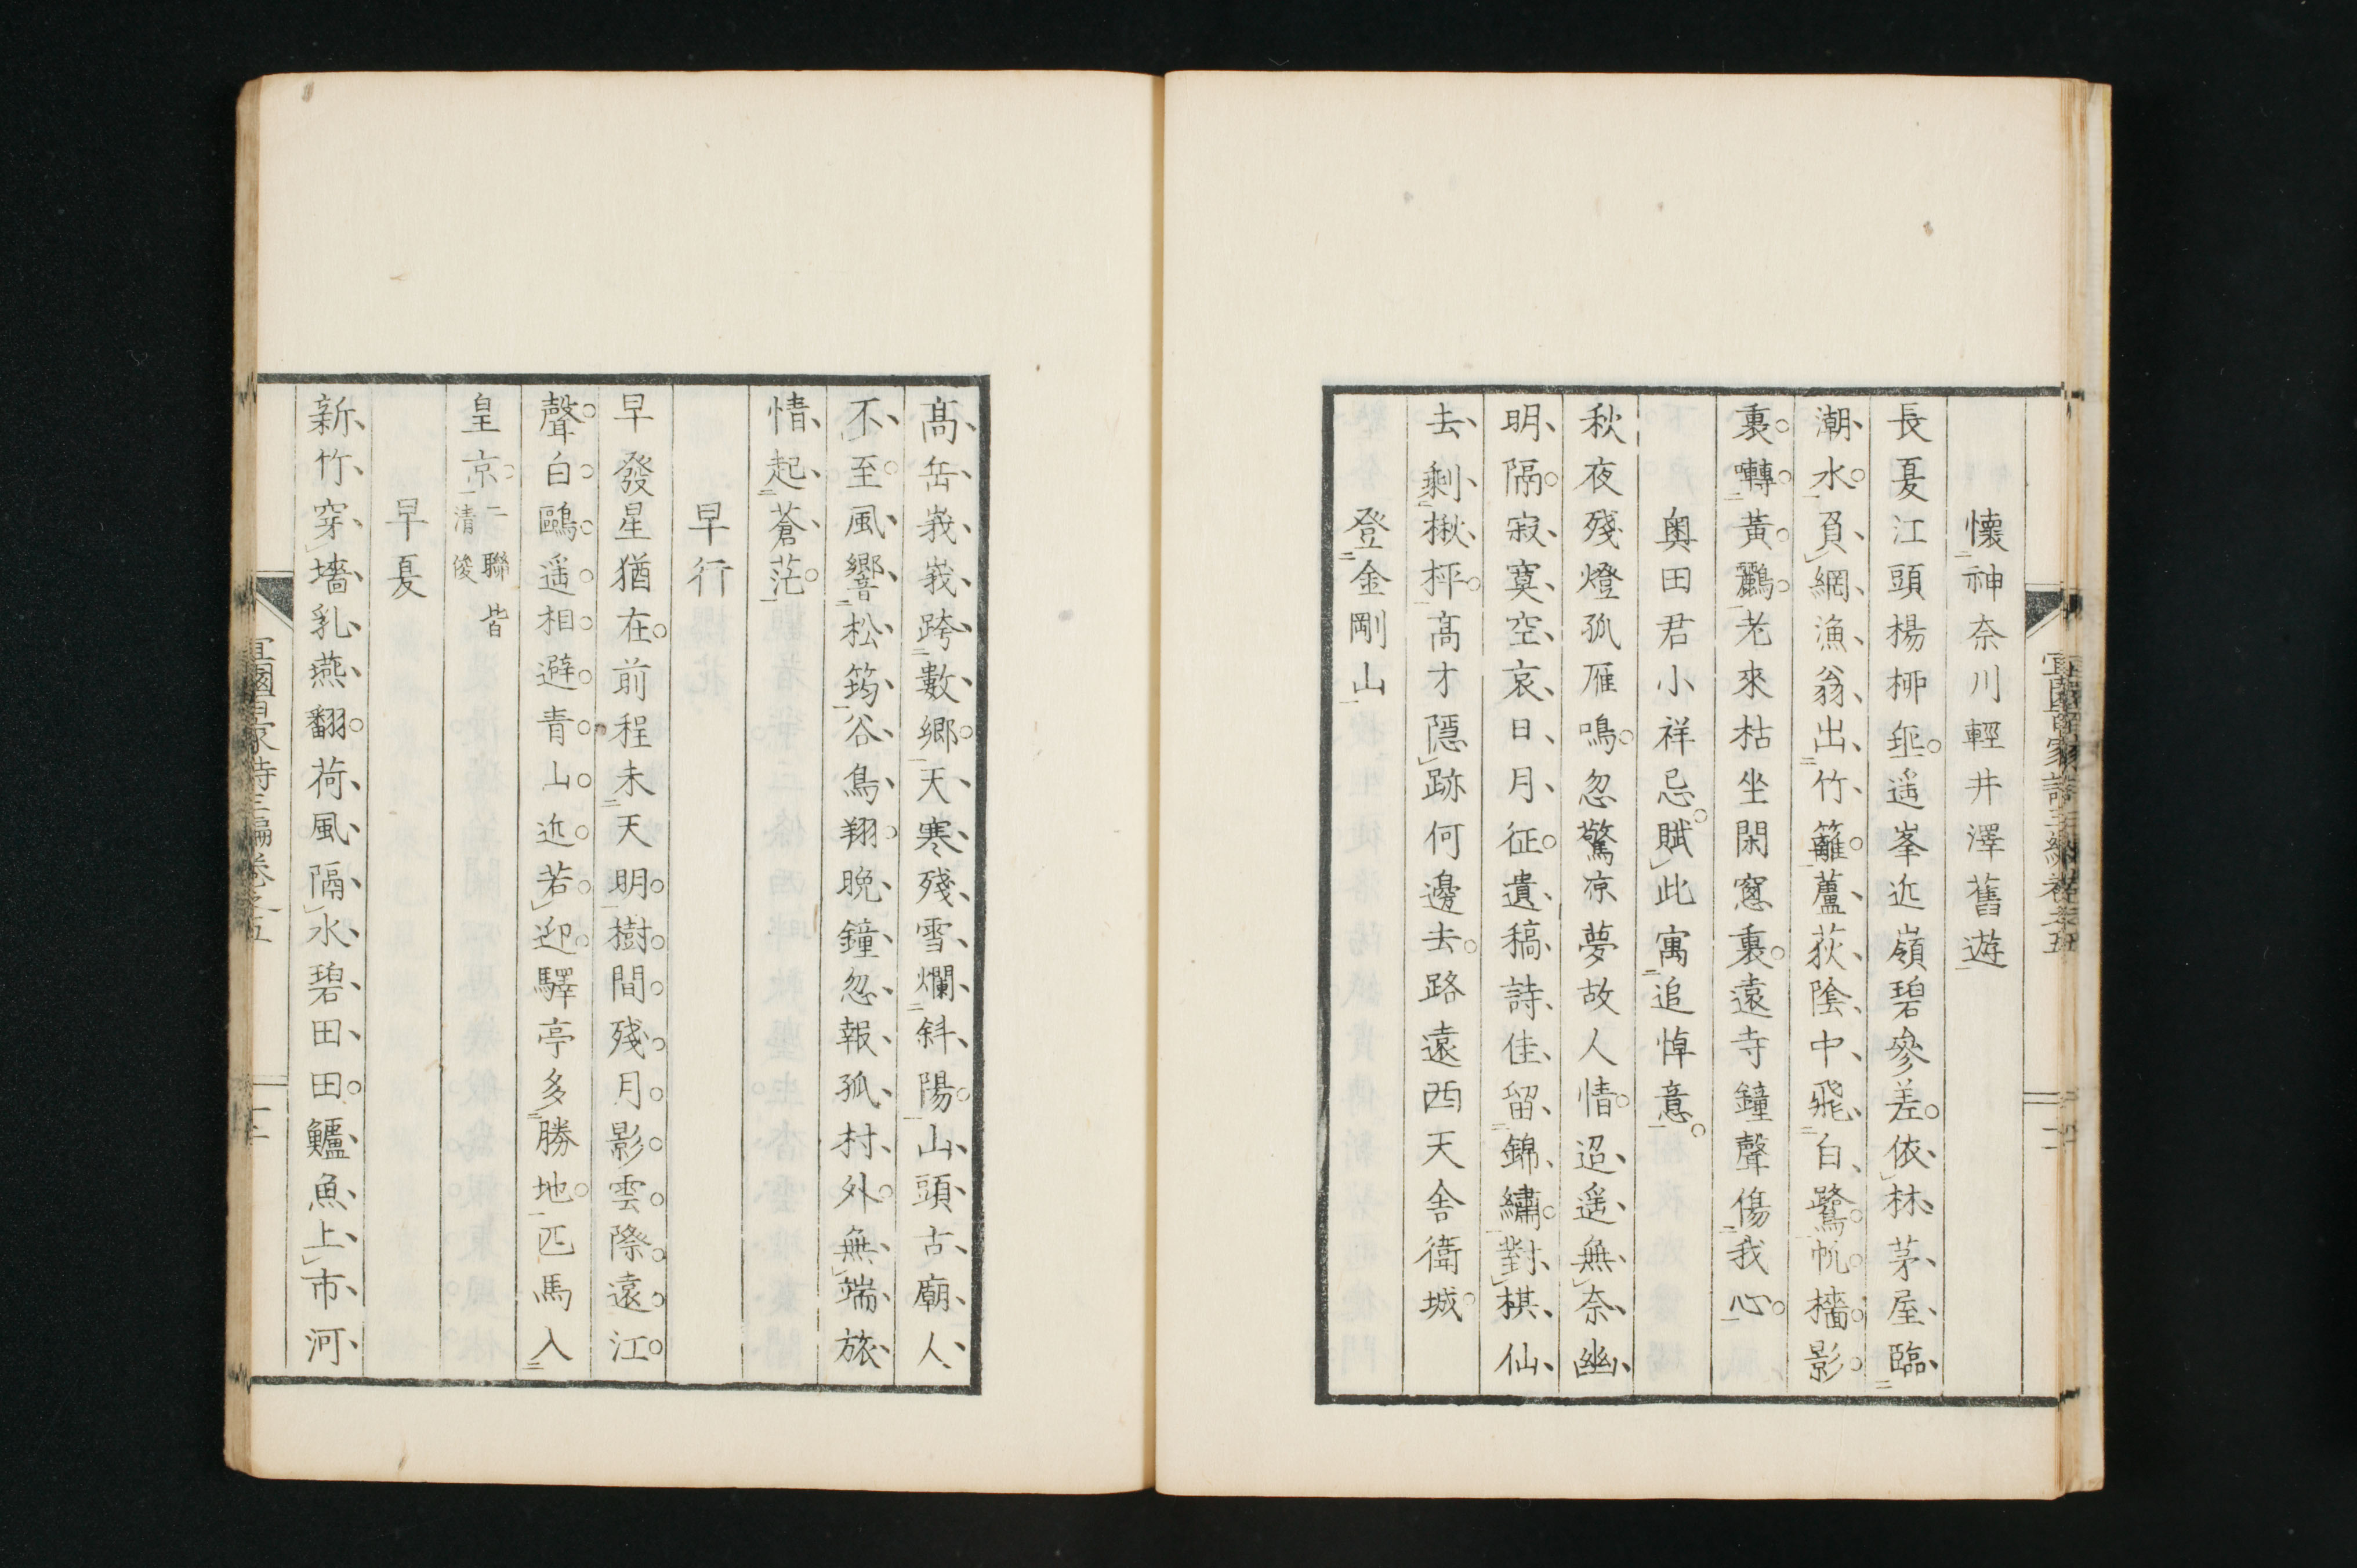 懷神奈川輕井澤舊遊
長夏江頭楊柳垂遥峯近嶺碧參差依林茅屋臨
潮水負網漁翁出竹籬蘆荻陰中飛白鷺帆檣影
裏囀黃鸝老來枯坐閑窓裏遠寺鐘聲傷我心
奥田君小祥忌賦此寓追悼意
秋夜殘燈孤雁鳴忽驚凉夢故人情迢遥無奈幽
明隔寂寞空哀日月征遺稿詩佳留錦繡對棋仙
去剩楸枰高才隱跡何邊去路遠西天舍衛城
登金剛山
高岳峩峩跨數鄉天寒殘雪爛斜陽山頭古廟人
不至風響松筠谷鳥翔晩鐘忽報孤村外無端旅
情起蒼茫
早行
早發星猶在前程未天明樹間殘月影雲際遠江
聲白鷗遥相避青山近若迎驛亭多勝地匹馬入
皇京 二聯皆清俊
早夏
新竹穿墻乳燕翻荷風隔水碧田田鱸魚上市河
宜園百家詩三編卷之五